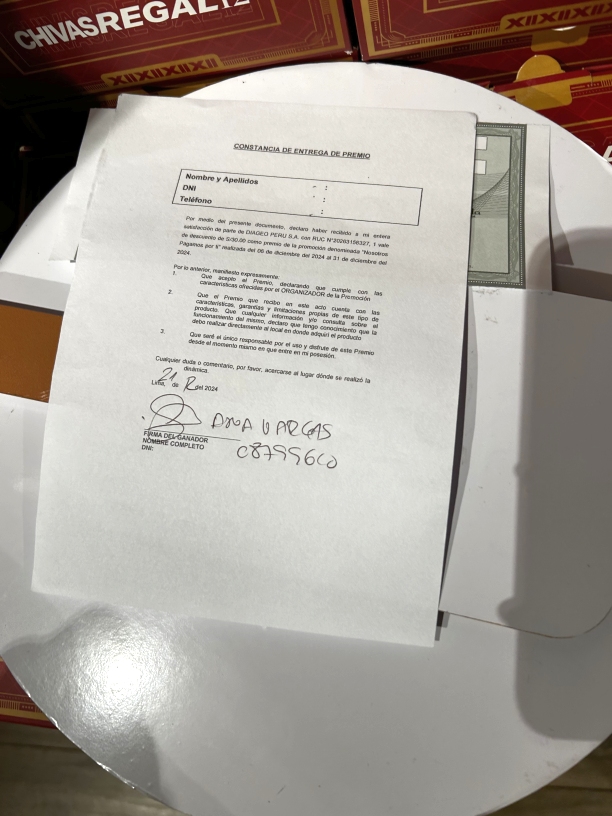 CHIVAS REGAL 12
XIIXIIXIIXII
XIIXIIXIIXI
CONSTANCIA DE ENTREGA DE PREMIO
Nombre y Apellidos :
DNI :
Teléfono :
Por medio del presente documento, declaro haber recibido a mi entera
satisfacción de parte de DIAGEO PERU S.A. con RUC N°20263158327, 1 vale
de descuento de S/30.00 como premio de la promoción denominada "Nosotros
Pagamos por ti" realizada del 06 de diciembre del 2024 al 31 de diciembre del
2024.
Por lo anterior, manifiesto expresamente:
1. Que acepto el Premio, declarando que cumple con las
características ofrecidas por el ORGANIZADOR de la Promoción
2. Que el Premio que recibo en este acto cuenta con las
características, garantías y limitaciones propias de este tipo de
producto. Que cualquier información y/o consulta sobre el
funcionamiento del mismo, declaro que tengo conocimiento que la
debo realizar directamente al local en donde adquirí el producto
3. Que seré el único responsable por el uso y disfrute de este Premio
desde el momento mismo en que entre en mi posesión.
Cualquier duda o comentario, por favor, acercarse al lugar dónde se realizó la
dinámica.
Lima, 21 de 12 del 2024
ANA VARGAS
FIRMA DEL GANADOR
NOMBRE COMPLETO
DNI: